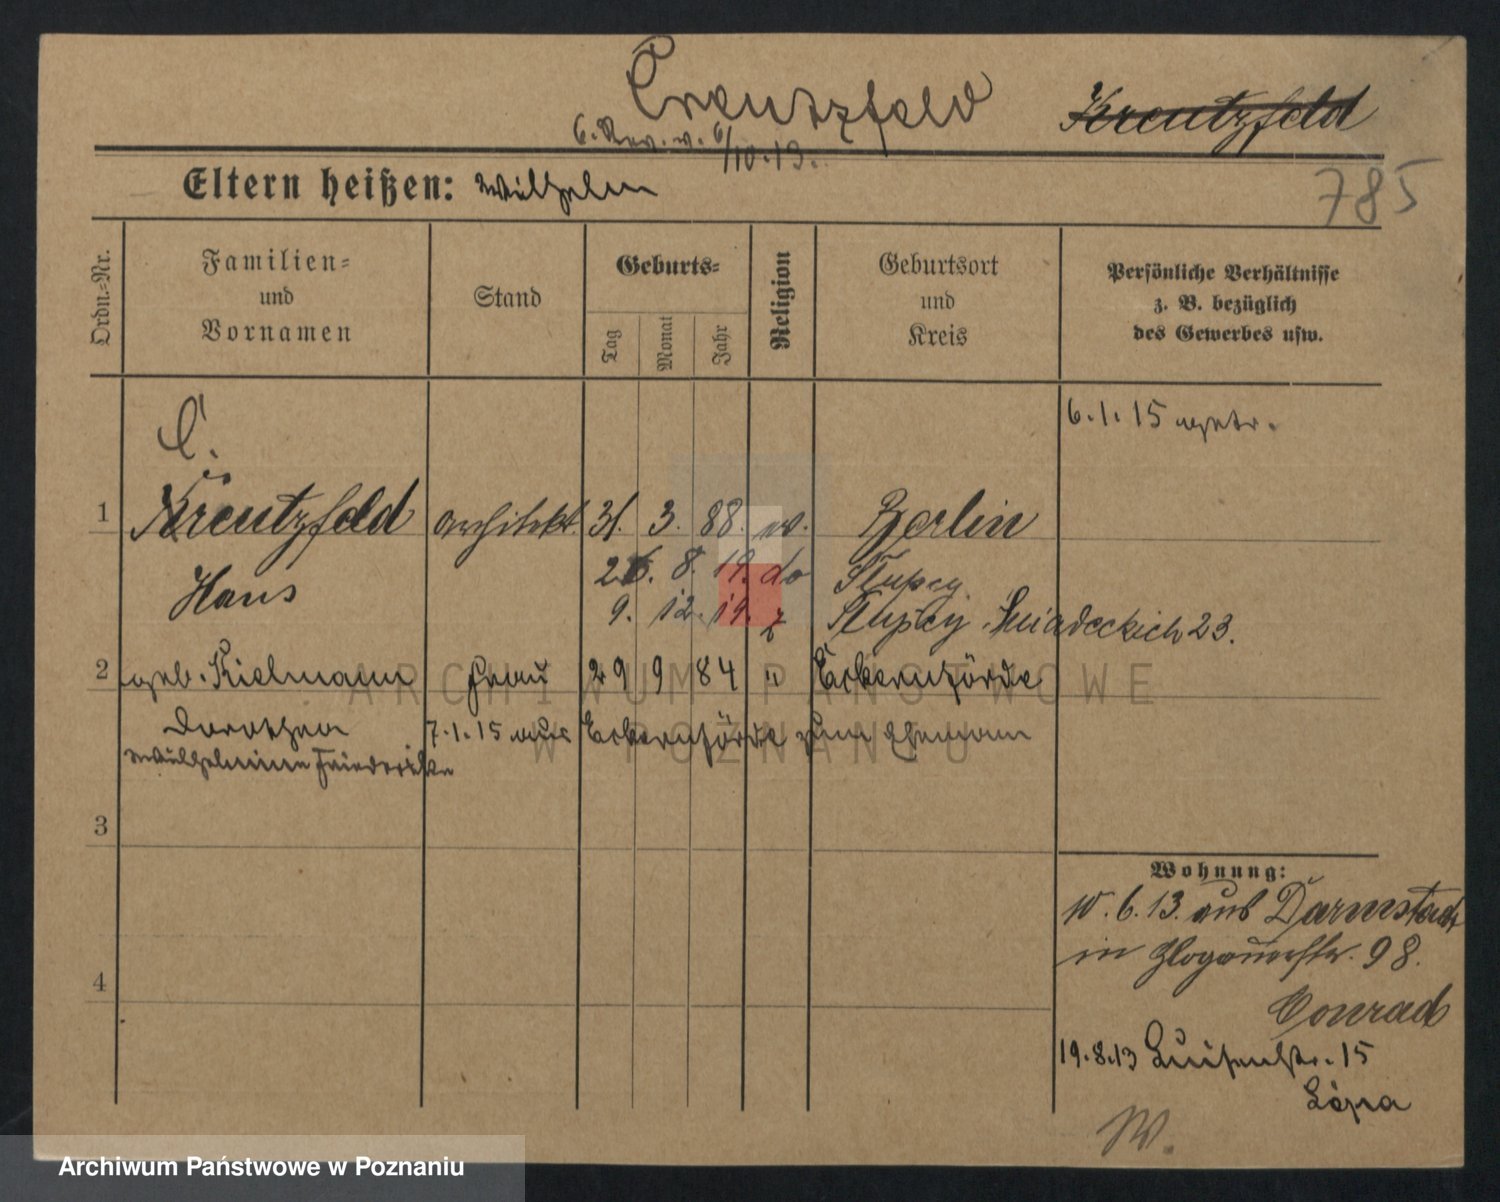 Creutzfeld Kreutzfeld
6. Rev. v. 6/10.13.
Eltern heißen: Wilhelm
785
Ordn.-Nr.
Familien-
und
Vornamen
Stand
Geburts-
Tag
Monat
Jahr
Religion
Geburtsort
und
Kreis
Persönliche Verhältnisse
z. B. bezüglich
des Gewerbes usw.
6.1.15 getr.
C.
1 Kreutzfeld Architekt. 31. 3. 88. ev. Berlin
Hans
8. 19. do Slupcy
9. 12. 19. Slupcy Sniadeckich 23.
2 geb. Kielmann Frau 29 9 84 " Eckernförde
Dorothea 7.1.15 aus Eckernförde zum Ehemann
Wilhelmine Friederike
3
4
Wohnung:
10.6.13. aus Darmstadt
in Glogauerstr. 98.
Conrad
19.8.13 Luisenstr. 15
W.
ARCHIWUM PAŃSTWOWE
W POZNANIU
Archiwum Państwowe w Poznaniu